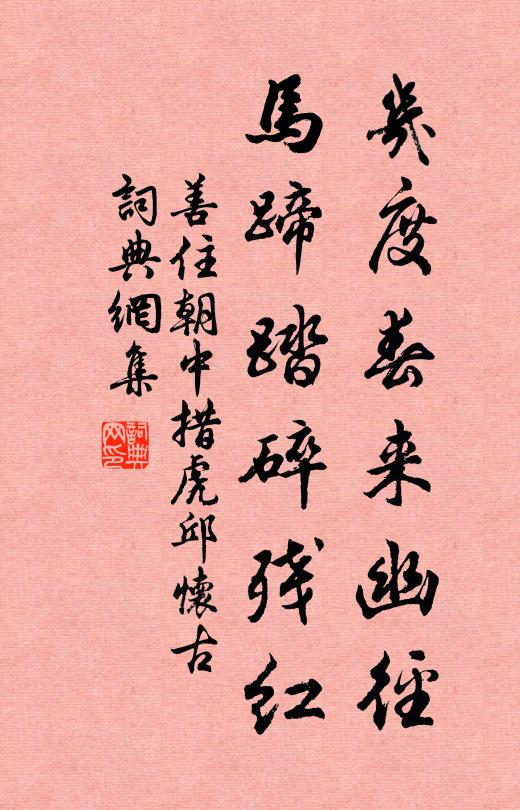 幾度春来幽徑
馬蹄踏碎残紅
善住朝中措虎邱懷古
詞典網集
詞典网印